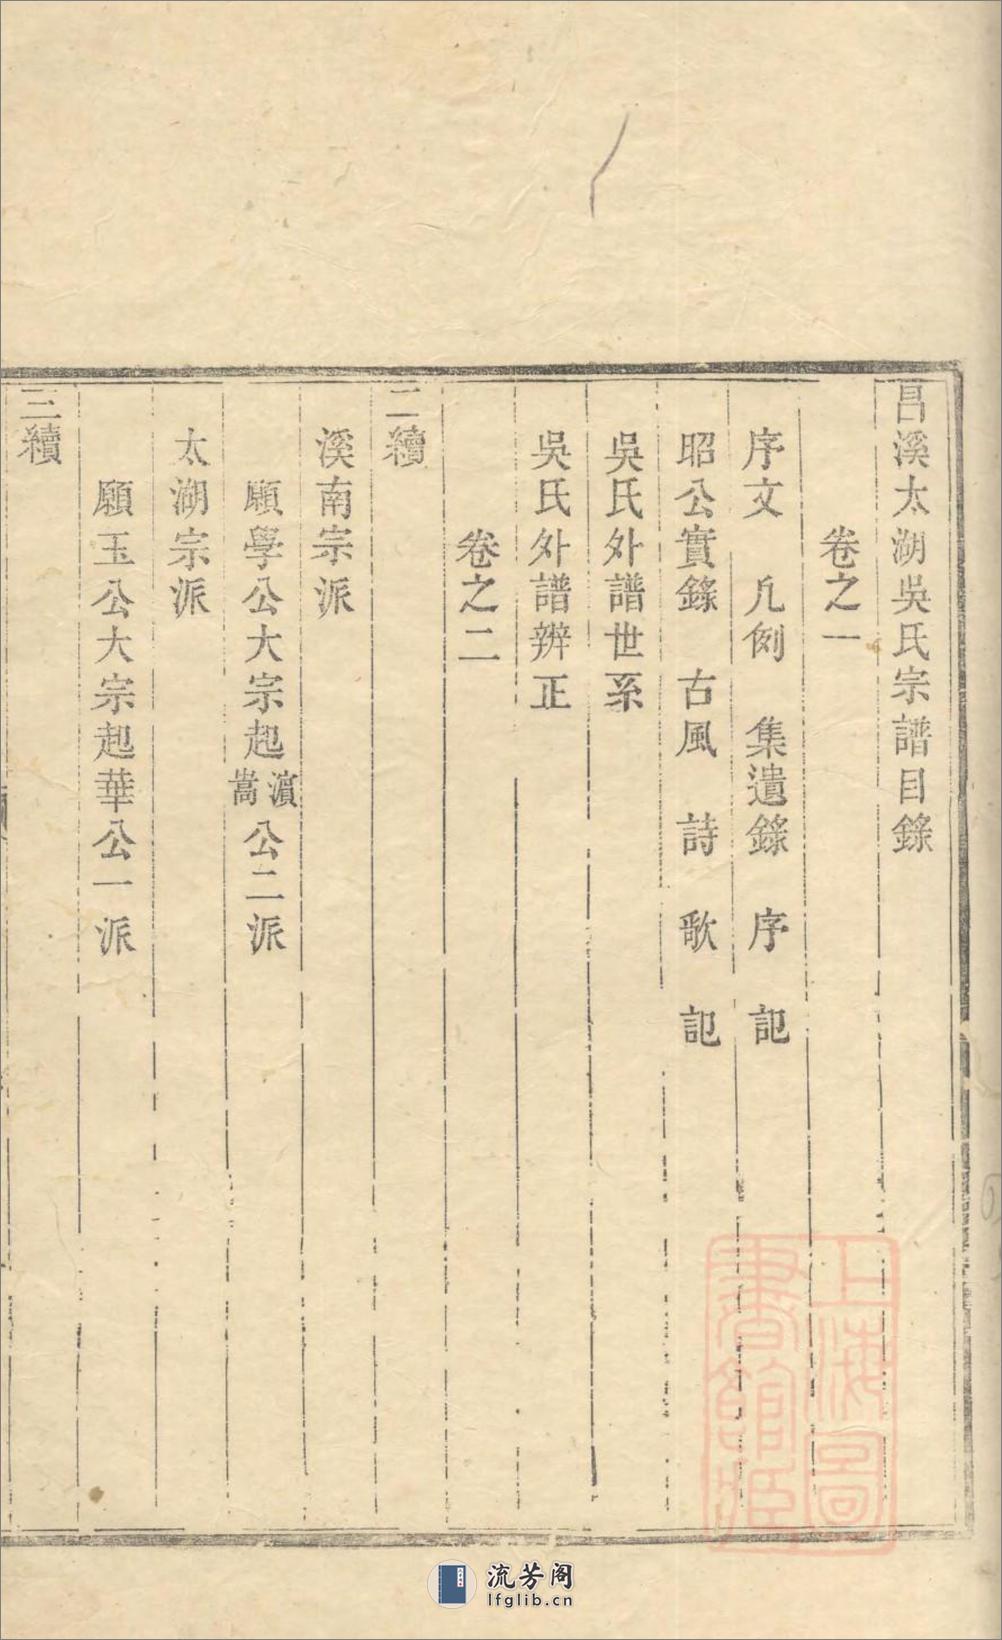 昌溪太湖吳氏宗譜目錄
卷之一
序文 凡例 集遺錄 序 記
昭公實錄 古風 詩 歌 記
吳氏外譜世系
吳氏外譜辨正
卷之二
二續
溪南宗派
願學公大宗起濵嵩公二派
太湖宗派
願玉公大宗起華公一派
三續
上海圖
書館藏
流芳阁
lfglib.cn